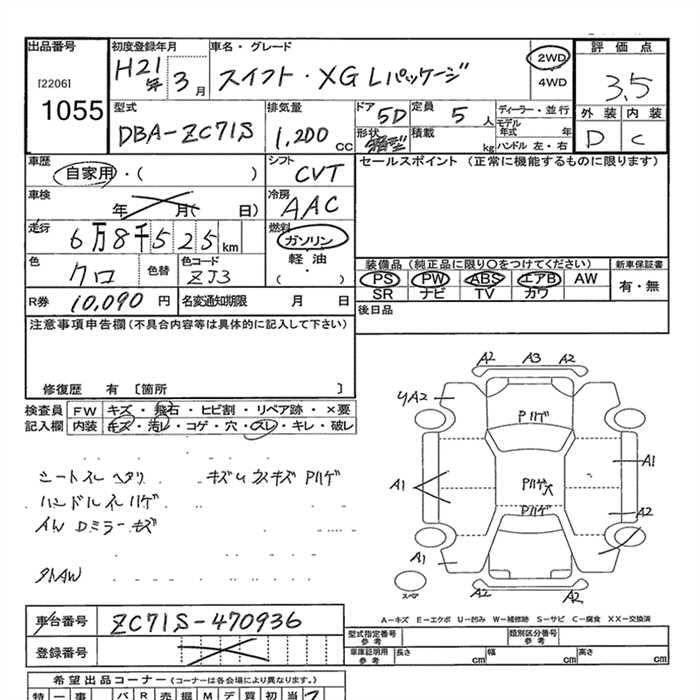 出品番号 [2206] 1055
初度登録年月 H21年 3月
車名・グレード スイフト・XG Lパッケージ
2WD
4WD
評価点 3.5
外装 D 内装 C
型式 DBA-ZC71S
排気量 1,200 CC
ドア 5D
定員 5人
形状
積載 kg
ディーラー・並行
モデル年式 年
ハンドル 左・右
車歴 自家用・( )
シフト CVT
セールスポイント (正常に機能するものに限ります)
車検 年 月( 日)
冷房 AAC
走行 6万8千525km
燃料 ガソリン
軽油
・
( )
色 クロ 色替 色コード ZJ3
装備品 (純正品に限り○をつけてください)
新車保証書
PS PW ABS エアB AW
SR ナビ TV カワ
有・無
R券 10,090円 名変通知期限 月 日
後日品
注意事項申告欄 (不具合内容等は具体的に記入して下さい)
修復歴 有 〔箇所 〕
検査員記入欄 FW キズ・飛石・ヒビ割・リペア跡・×要
内装 キズ・汚レ・コゲ・穴・スレ・キレ・破レ
シートスレ ヘタリ
ハンドルスレ ハゲ
AW Dミラーキズ
A2 A3 A2
A2
Pハゲ
A1
A1
Pハゲ
Pハゲ
A2
A1
A2 A2
スペア
A-キズ E-エクボ U-凹み W-補修跡 S-サビ C-腐食 XX-交換済
車台番号 ZC71S-470936
登録番号
型式指定番号 参考
類別区分番号 参考
車庫証明用 参考 長さ cm 幅 cm 高さ cm
希望出品コーナー (コーナーは各会場により異なります。)